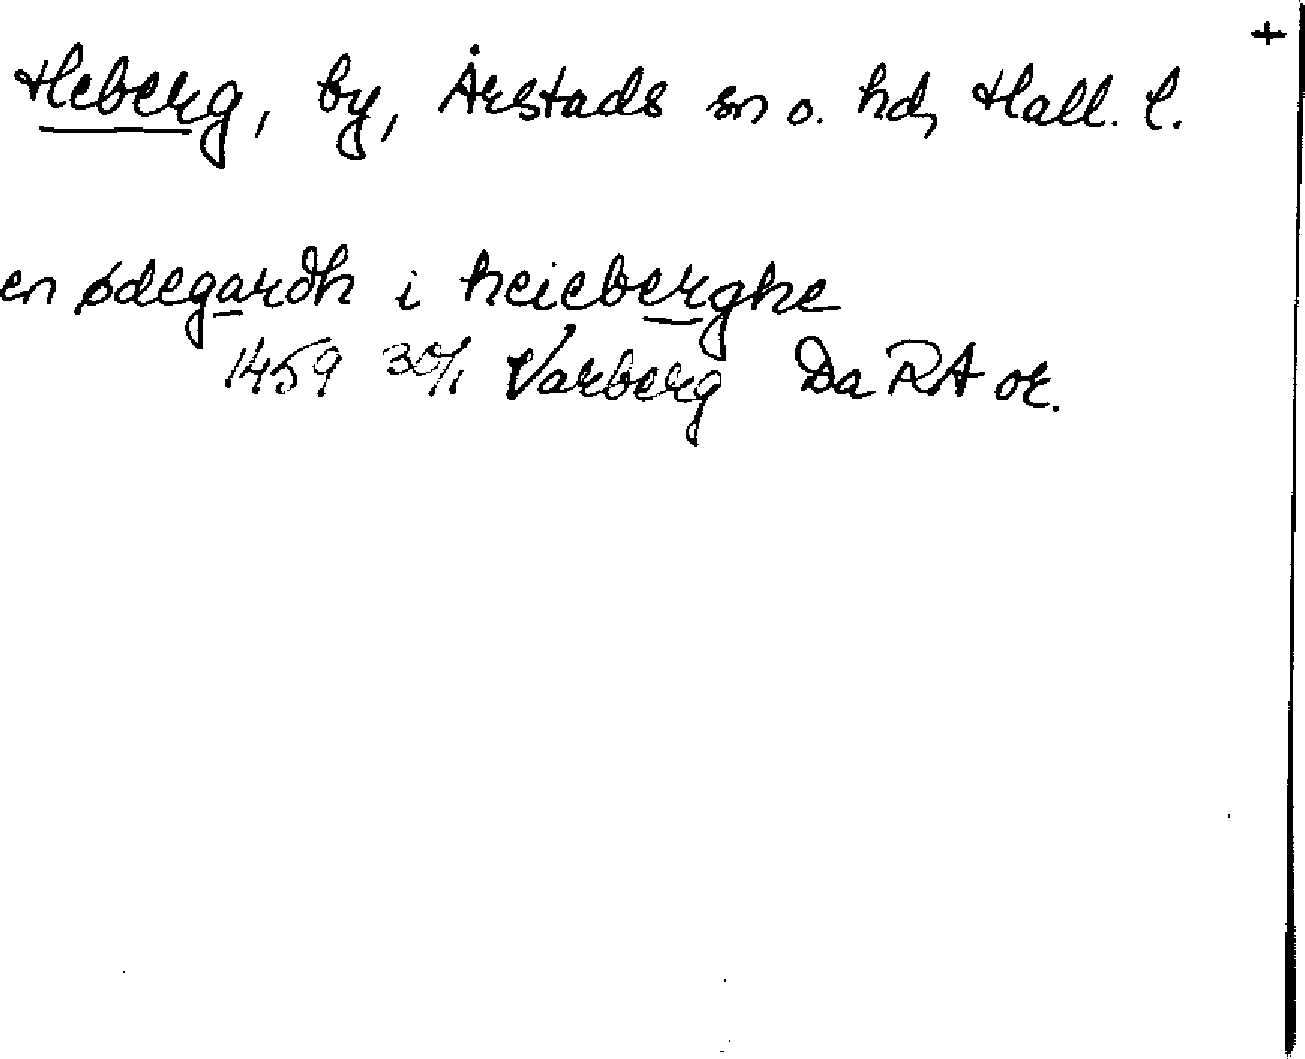 +
Heberg, by, Årstads sn o. hd, Hall. l.
en ødegardh i heieberghe
1459 30/1 Varberg Da RA or.